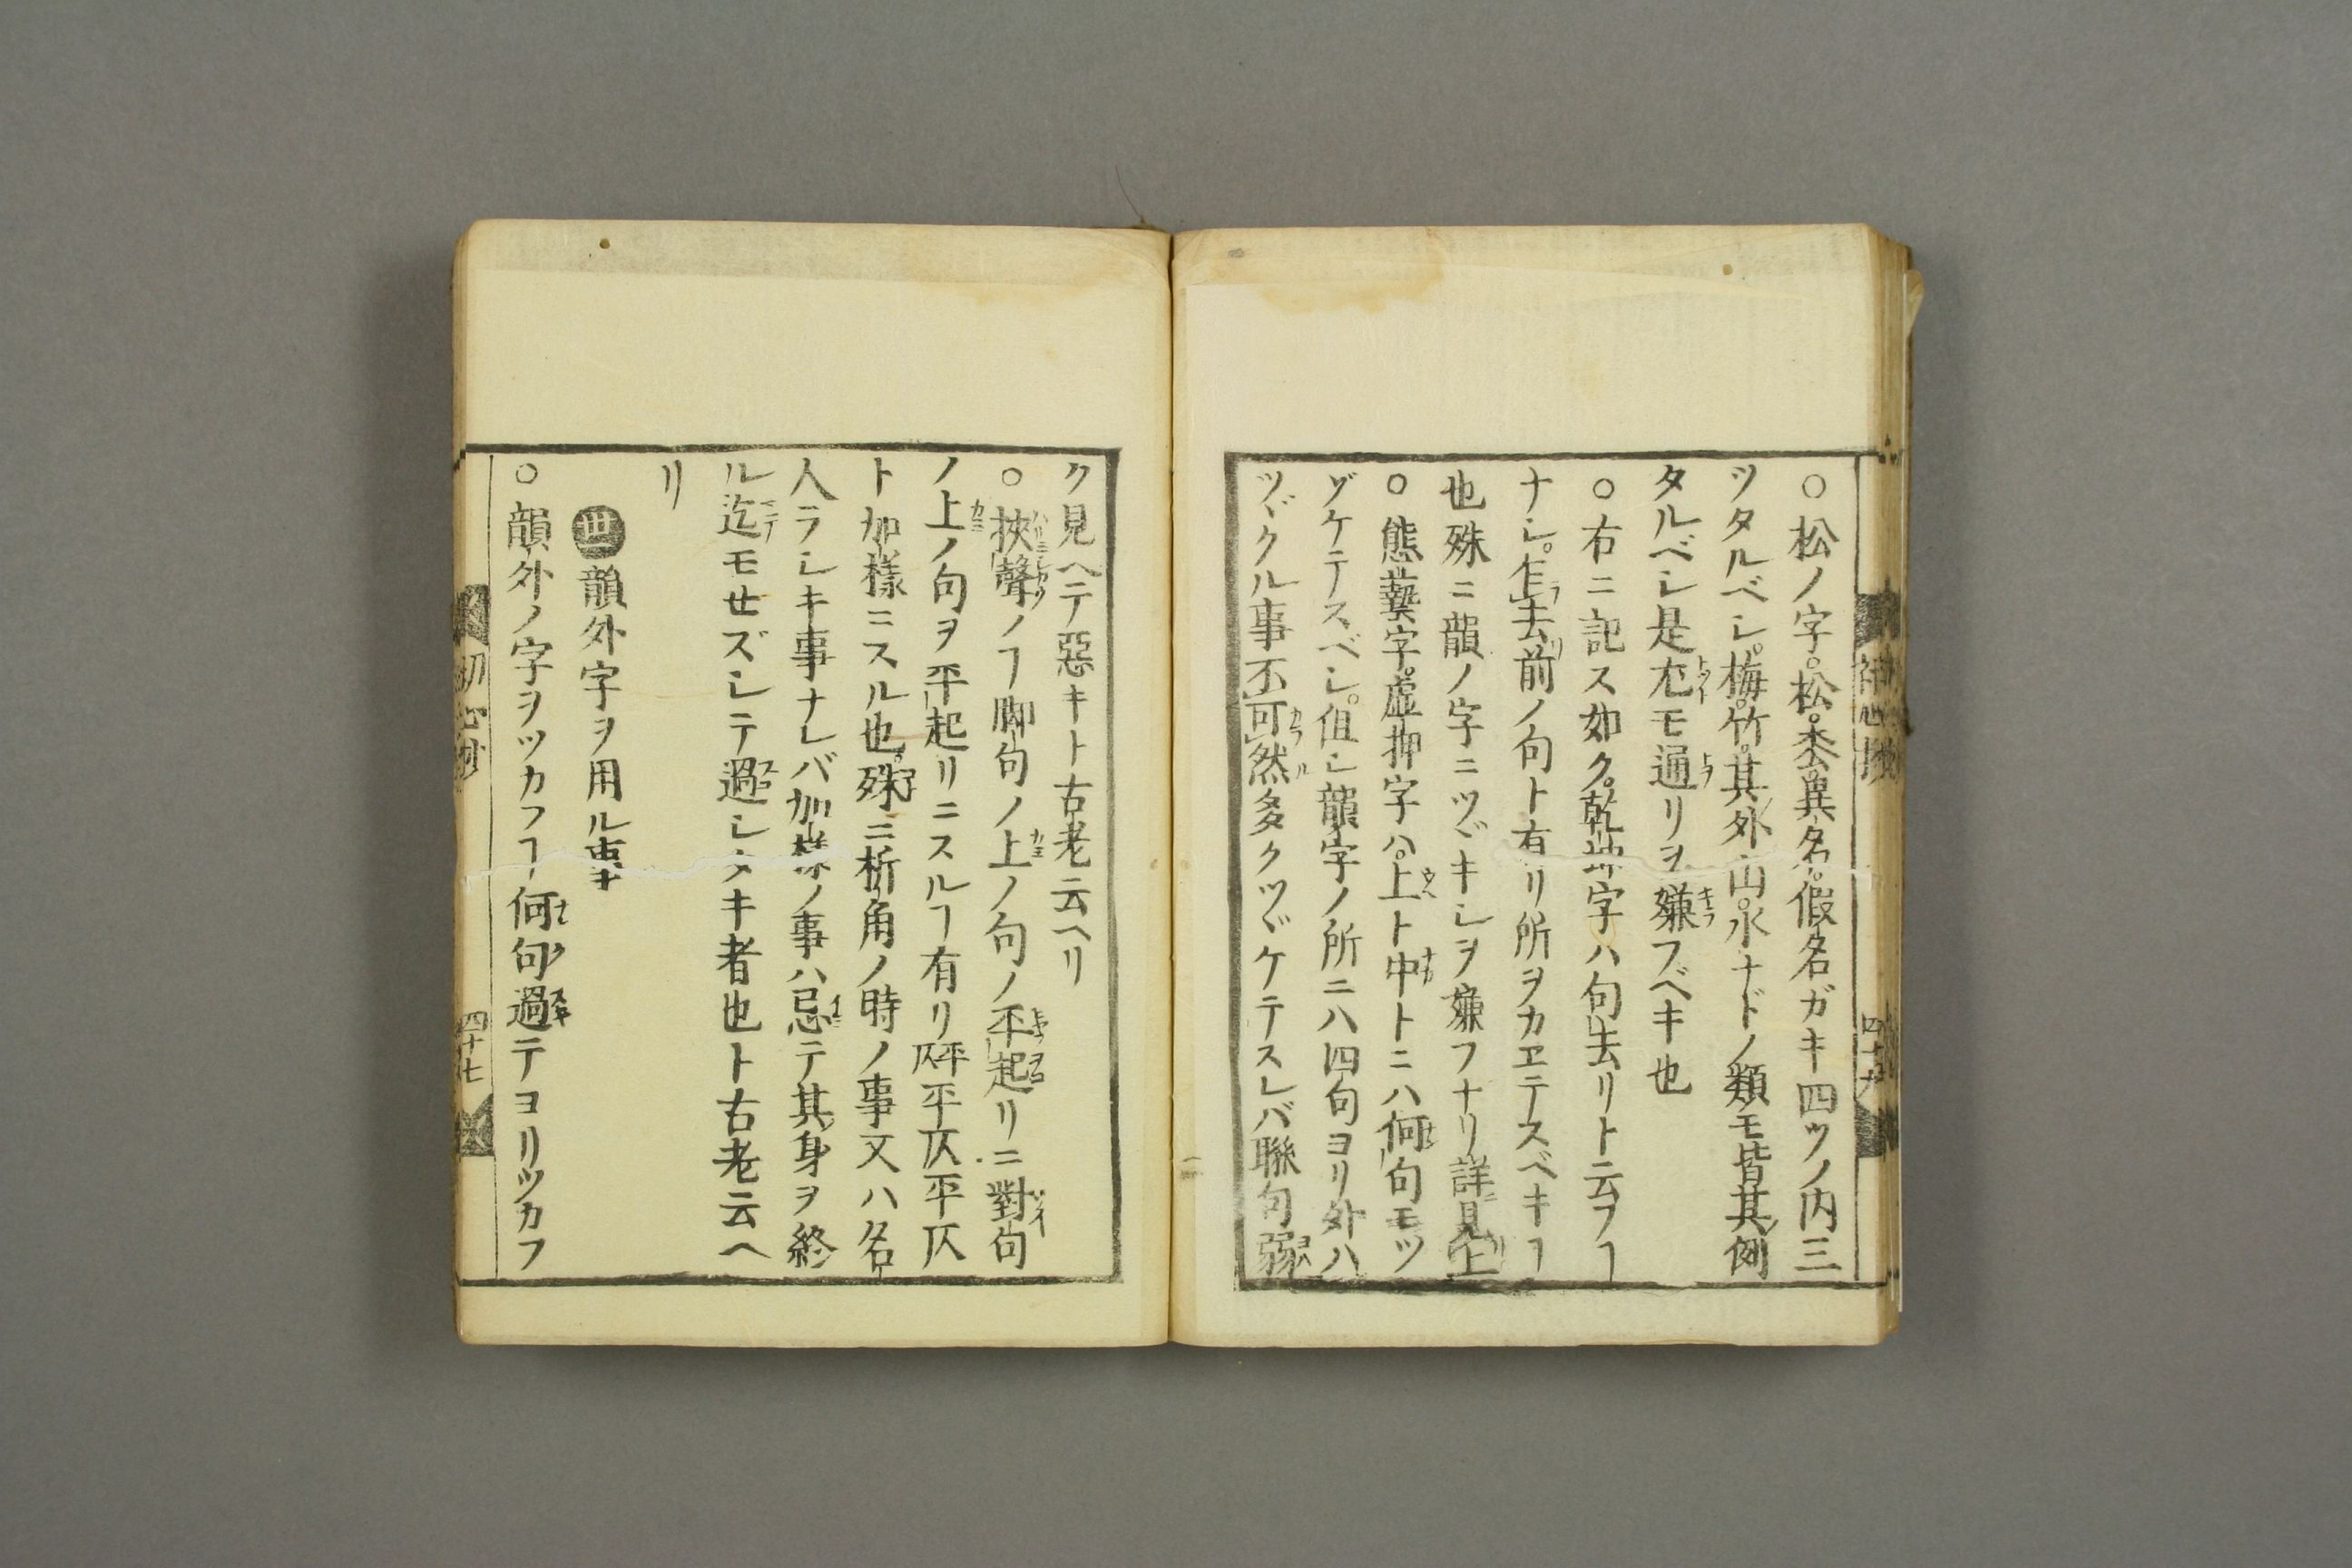 ○松ノ字。松。黍。異名。假名ガキ四ツノ内三
ツタルベシ。梅。竹。其外山。水ナドノ類モ皆其例
タルベシ是尤モ通リヲ嫌フベキ也
○右ニ記ス如ク。乾坤字ハ句去リト云フヿ
ナシ。乍去前ノ句ト有リ所ヲカヱテスベキヿ
也殊ニ韻ノ字ニツヾキシヲ嫌フナリ詳見上
○態藝字。虚押字ハ。上ト中トニハ何句モツ
ヾケテスベシ。但シ韻字ノ所ニハ四句ヨリ外ハ
ツヾクル事不可然多クツヾケテスレバ聯句弱
ク見ヘテ惡キト古老云ヘリ
○挾聲ノヿ脚句ノ上ノ句ノ平起リニ對句
ノ上ノ句ヲ平起リニスルヿ有リ平仄平仄平仄
ト加樣ニスル也。殊ニ折角ノ時ノ事又ハ名
人ラシキ事ナレバ加樣ノ事ハ忌テ其身ヲ終
ル迄モせズシテ過シタキ者也ト古老云ヘ
リ
丗韻外字ヲ用ル事
○韻外ノ字ヲツカフヿ何句過テヨリツカフ
初心抄
四十七